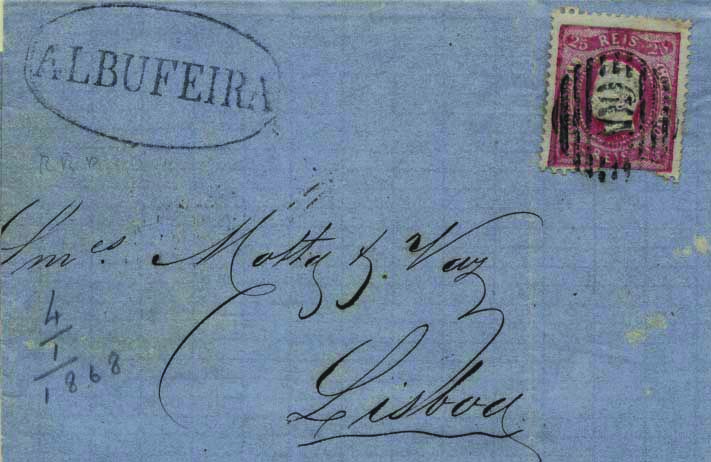 ALBUFEIRA
25 REIS 25
REIS
Smes Motta & Vaz
Lisboa
4
1
1868